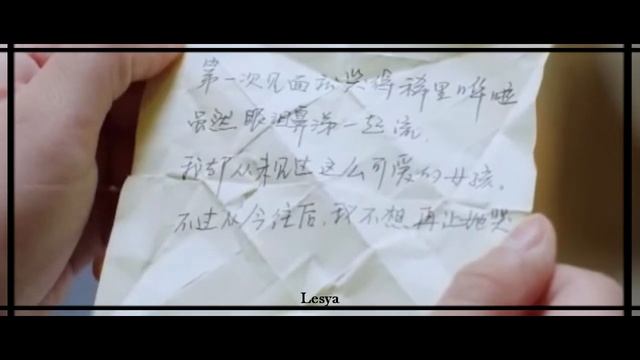 第一次见面就哭得稀里哗啦
虽然眼泪鼻涕一起流,
我却从未见过这么可爱的女孩。
不过从今往后,我不想再让她哭
Lesya